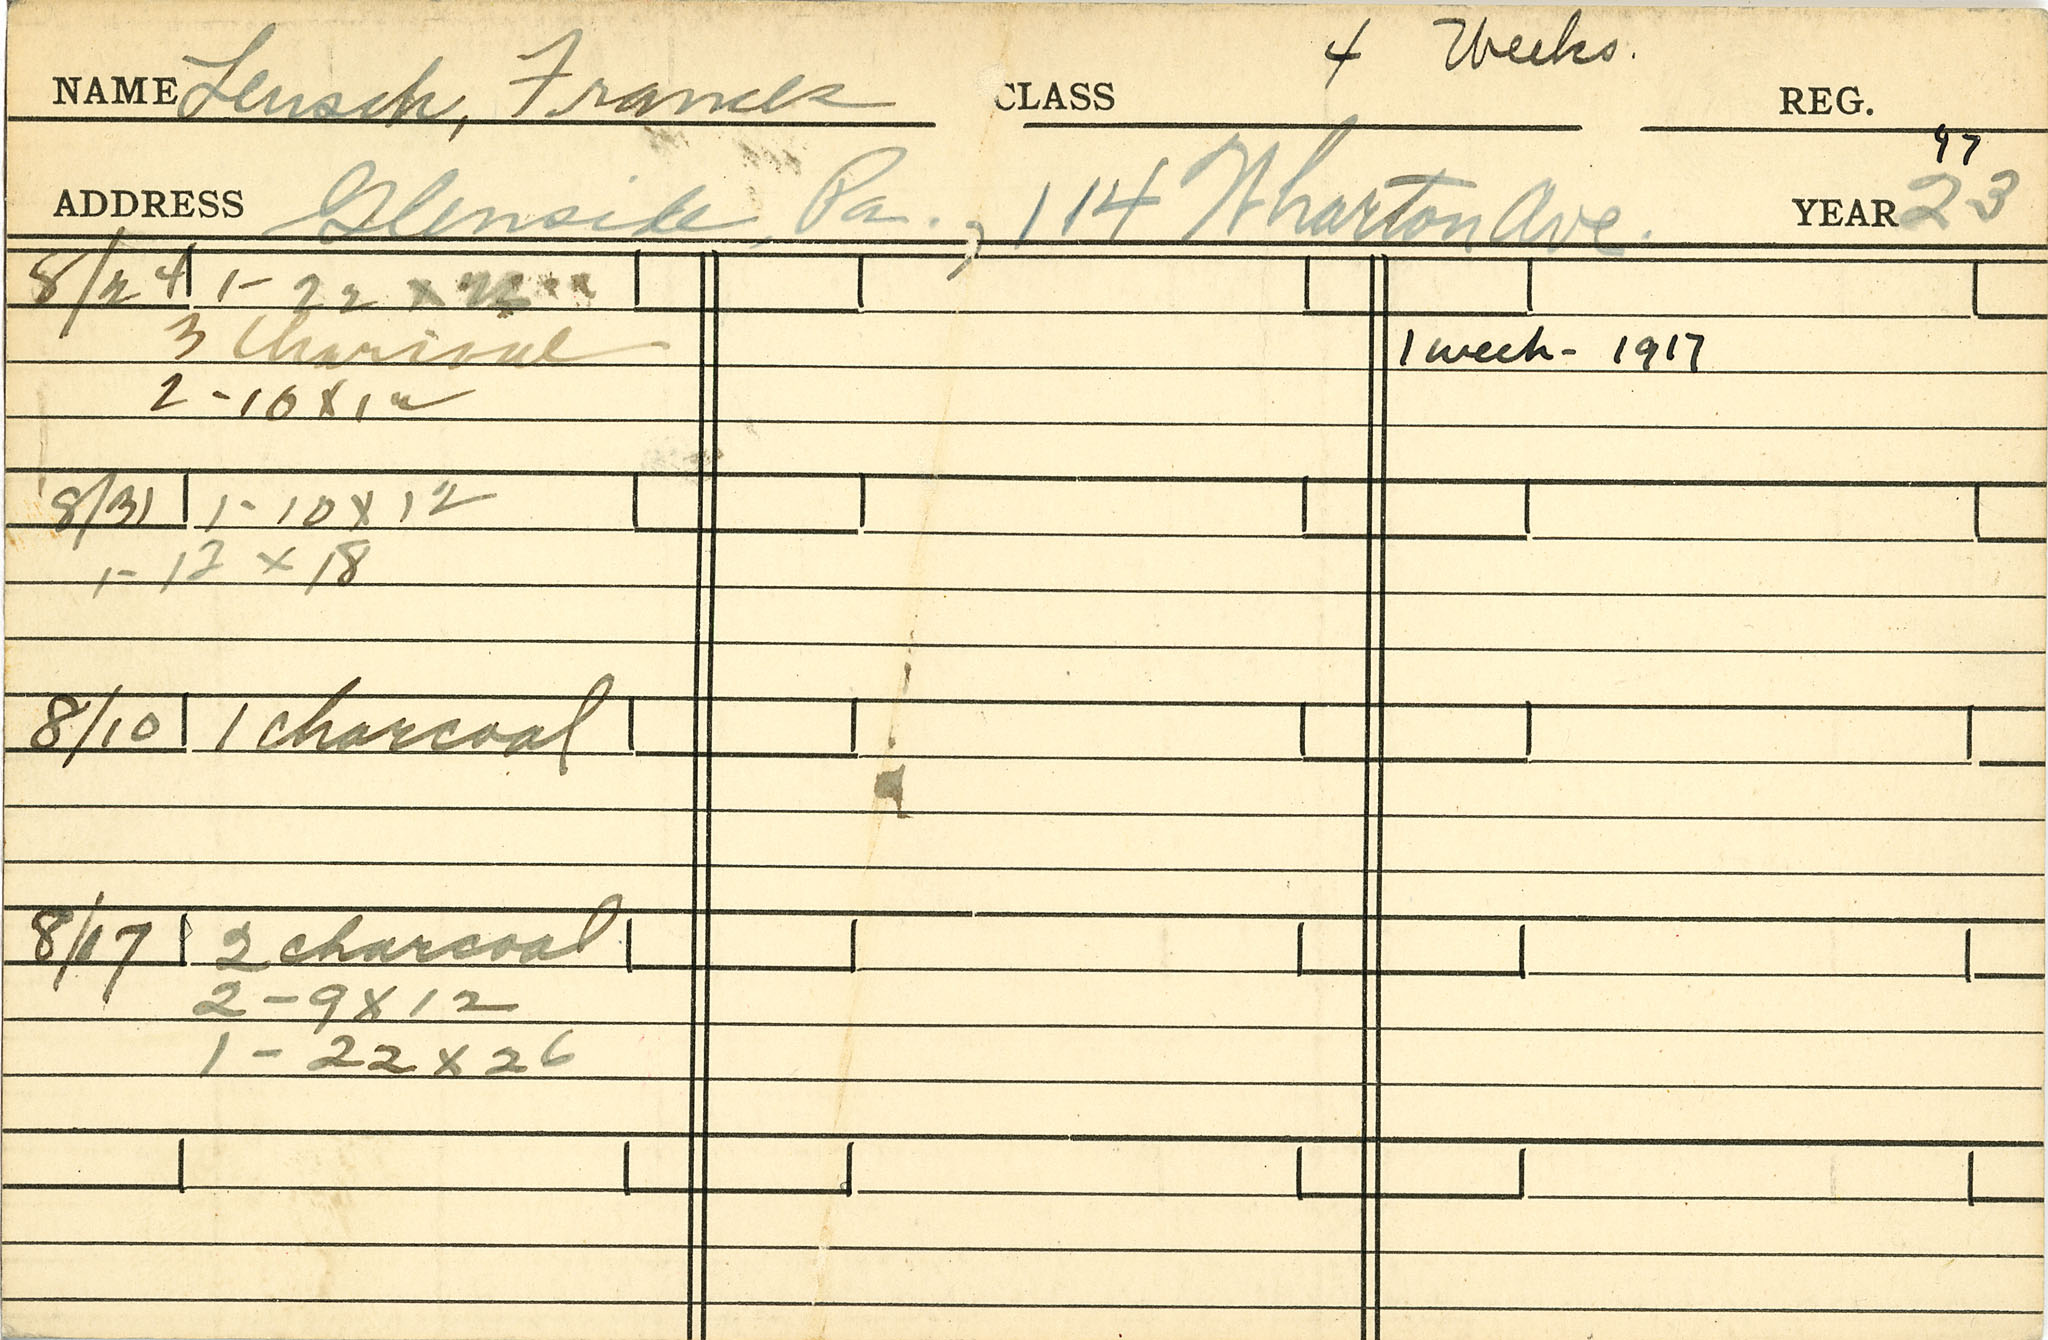 NAME Lensch, Frank CLASS 4 Weeks. REG.
97
ADDRESS Glenside, Pa., 114 Wharton Ave. YEAR 23
8/24 1- 22 x
3 Charcoal
1 week - 1917
2 - 10 x 12
8/31 1- 10 x 12
1- 12 x 18
8/10 1 charcoal
8/17 2 charcoal
2 - 9 x 12
1 - 22 x 26